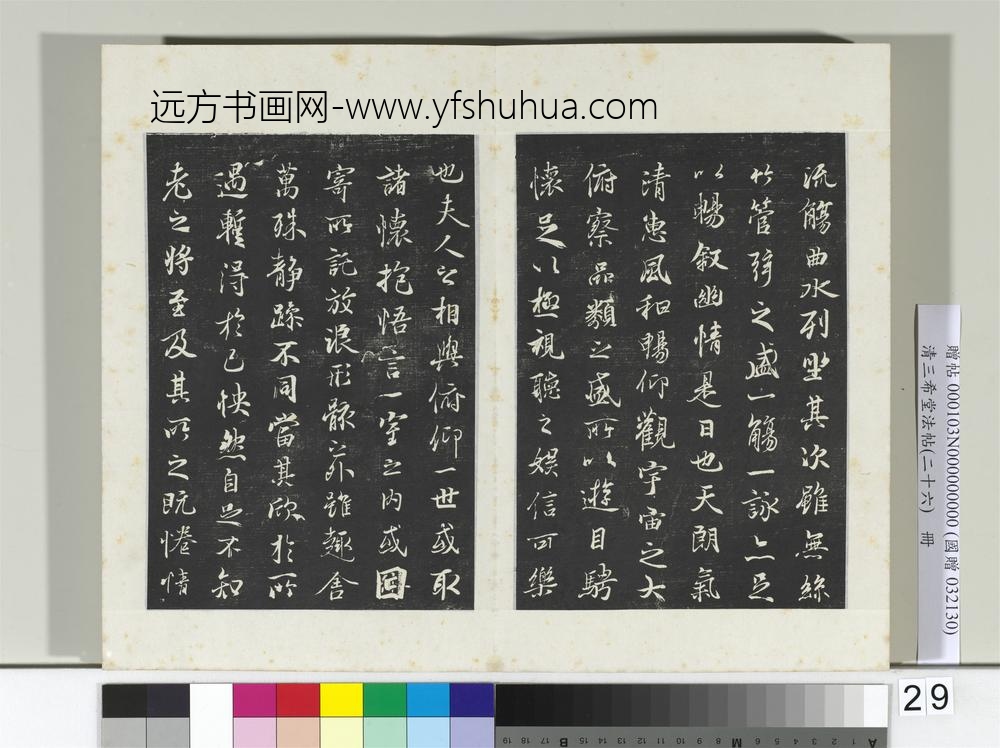 远方书画网-www.yfshuhua.com
流觴曲水列坐其次雖無絲
竹管弦之盛一觴一詠亦足
以暢叙幽情是日也天朗氣
清惠風和暢仰觀宇宙之大
俯察品類之盛所以遊目騁
懷足以極視聽之娛信可樂
也夫人之相與俯仰一世或取
諸懷抱悟言一室之內或因
寄所託放浪形骸之外雖趣舎
萬殊静躁不同當其欣於所
遇暫得於己怏然自足不知
老之將至及其所之既惓情
贈帖 000103N000000000 (國贈 032130)
清三希堂法帖(二十六) 冊
29
A 1 2 3 4 5 6 M 8 9 10 11 12 13 14 15 B 17 18 19